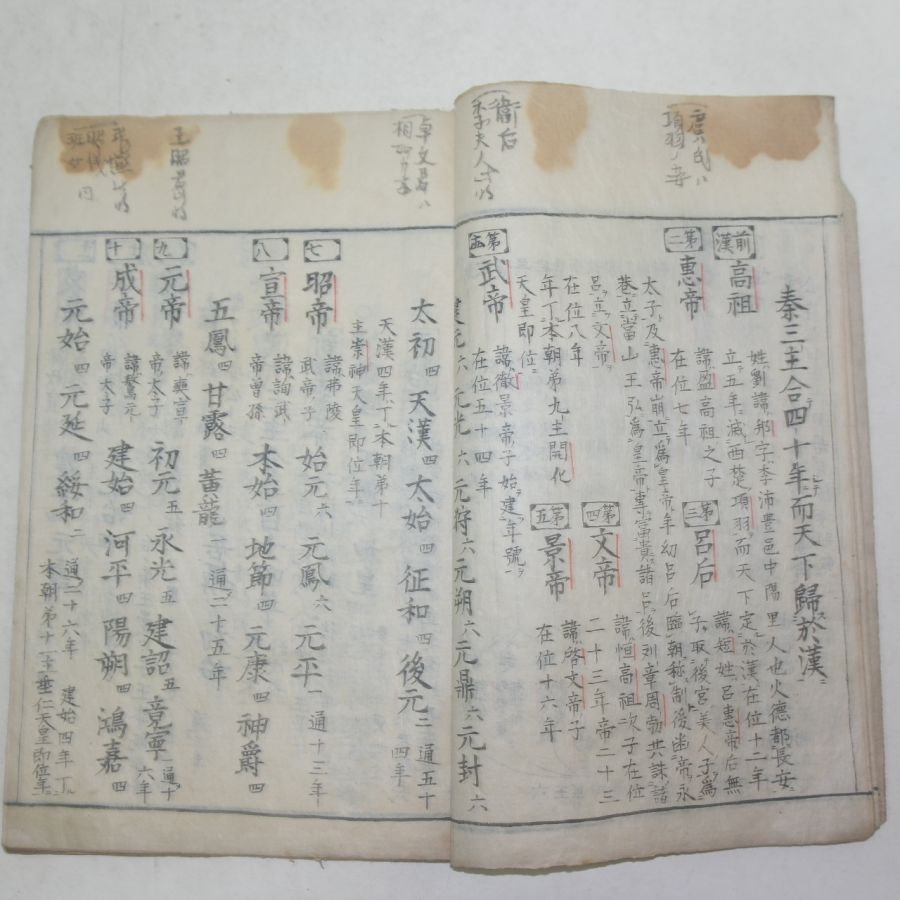 衛后
李夫人
項羽ノ寺
秦三主合四十年而天下歸於漢
前漢 高祖 姓劉諱邦字季沛豊邑中陽里人也火德都長安
立五年滅西楚項羽而天下定於漢在位十二年
第二 惠帝 諱盈高祖之子
在位七年
第三 呂后 諱短姓呂惠帝后無
子取後宮美人子為
太子及惠帝崩立為皇帝年幼呂后臨朝称制後幽帝永
巷立當山王弘為皇帝專富貴諸呂後刘章周勃共誅諸
呂立文帝
在位八年
第四 文帝 諱恒高祖次子在位
二十三年帝二十三
年丁本朝第九主開化
天皇即位
第五 景帝 諱啓文帝子
在位十六年
武帝 諱徹景帝子始建年號
在位五十四年
建元六 元光六 元狩六 元朔六 元鼎六 元封六
太初四 天漢四 太始四 征和四 後元二 通五十
四年
天漢四年丁本朝第十
主崇神天皇即位年
七 昭帝 諱弗陵
武帝子
始元六 元鳳六 元平一 通十三年
八 宣帝 諱詢武
帝曾孫
本始四 地節四 元康四 神爵四
五鳳四 甘露四 黃龍一 通二十五年
九 元帝 諱奭宣
帝太子
初元五 永光五 建詔五 竟寧 通十
六年
十 成帝 諱驁元
帝太子
建始四 河平四 陽朔四 鴻嘉四
元始四 元延四 綏和二 通二十六年 建始四年丁
本朝第十一主垂仁天皇即位年
卓文君ハ
王昭君
班女